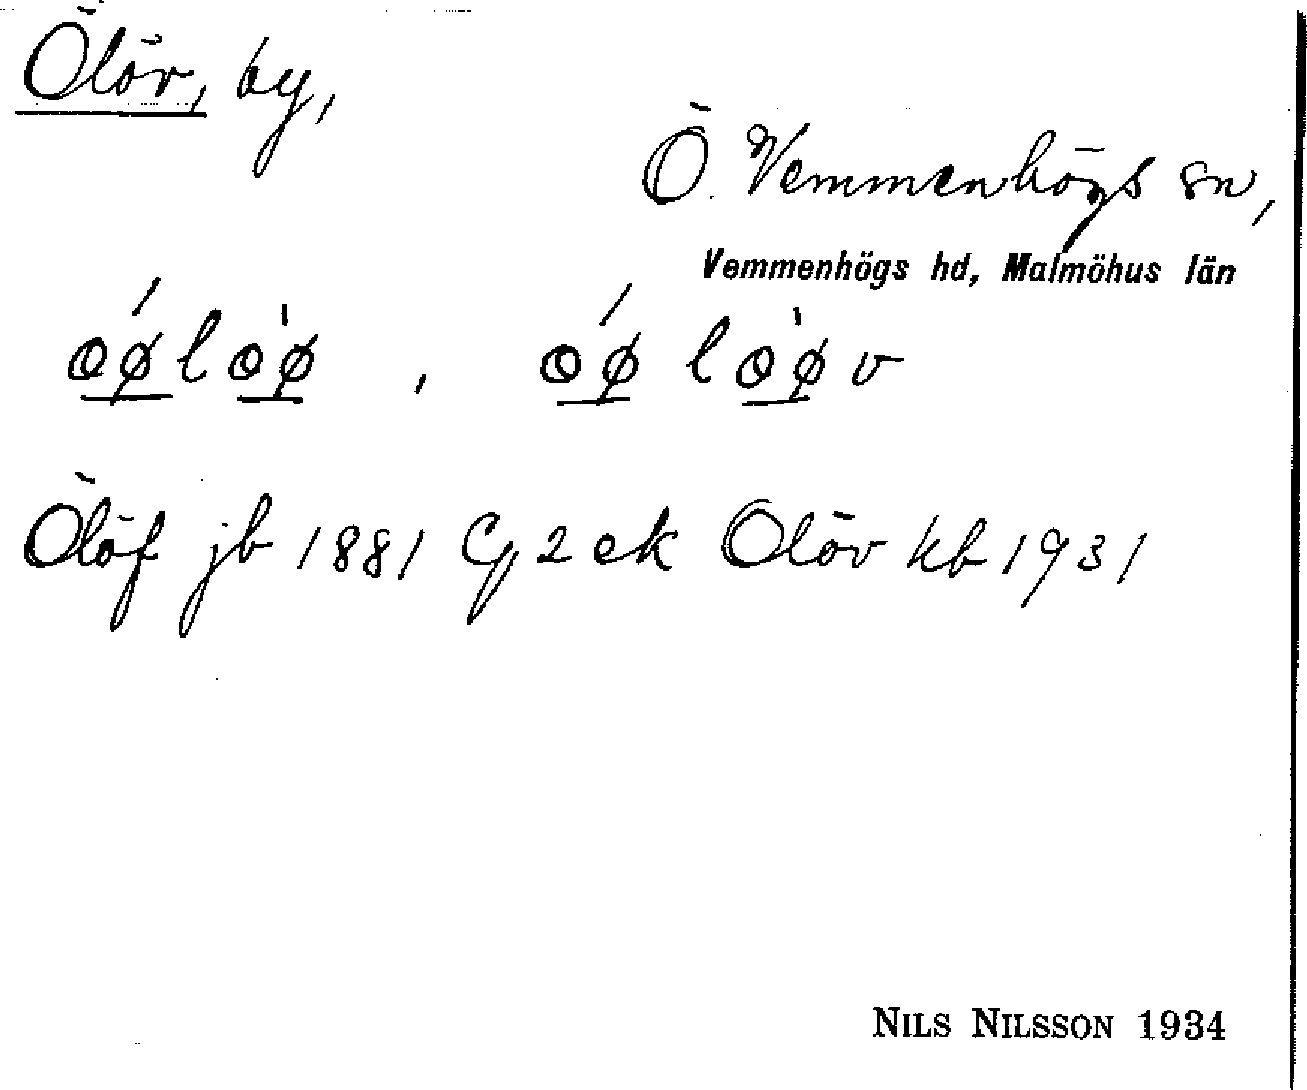 Ölöv, by,
Ö. Vemmenhögs sn,
Vemmenhögs hd, Malmöhus län
Ölöf jb 1881 Cg 2 ek Ölöv kb 1931
NILS NILSSON 1934